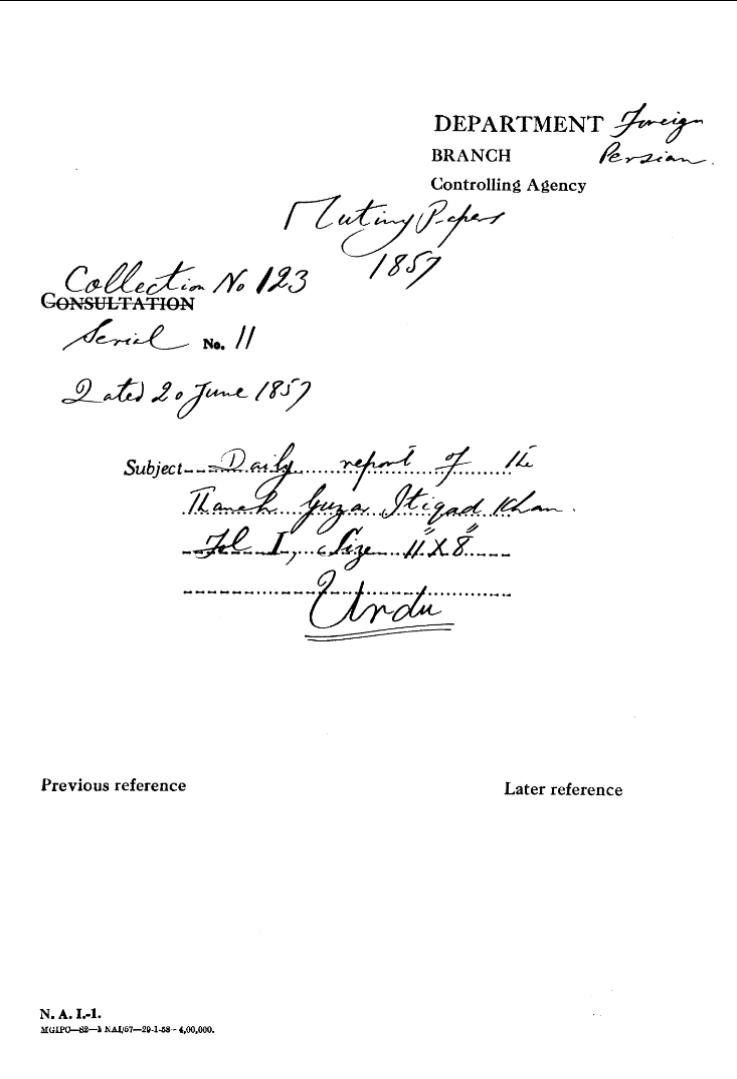 DEPARTMENT Foreign
BRANCH Persian.
Controlling Agency
Mutiny Papers
1857
Collection No 123
CONSULTATION
Serial No. 11
Dated 20 June 1857
Subject Daily report of the
Thanah Guzar Itiqad Khan.
Fol I, Size 11" X 8"
Urdu
Previous reference
Later reference
N. A. I.-1.
MGIPC—S2—1 NAI/57—29-1-58—4,00,000.